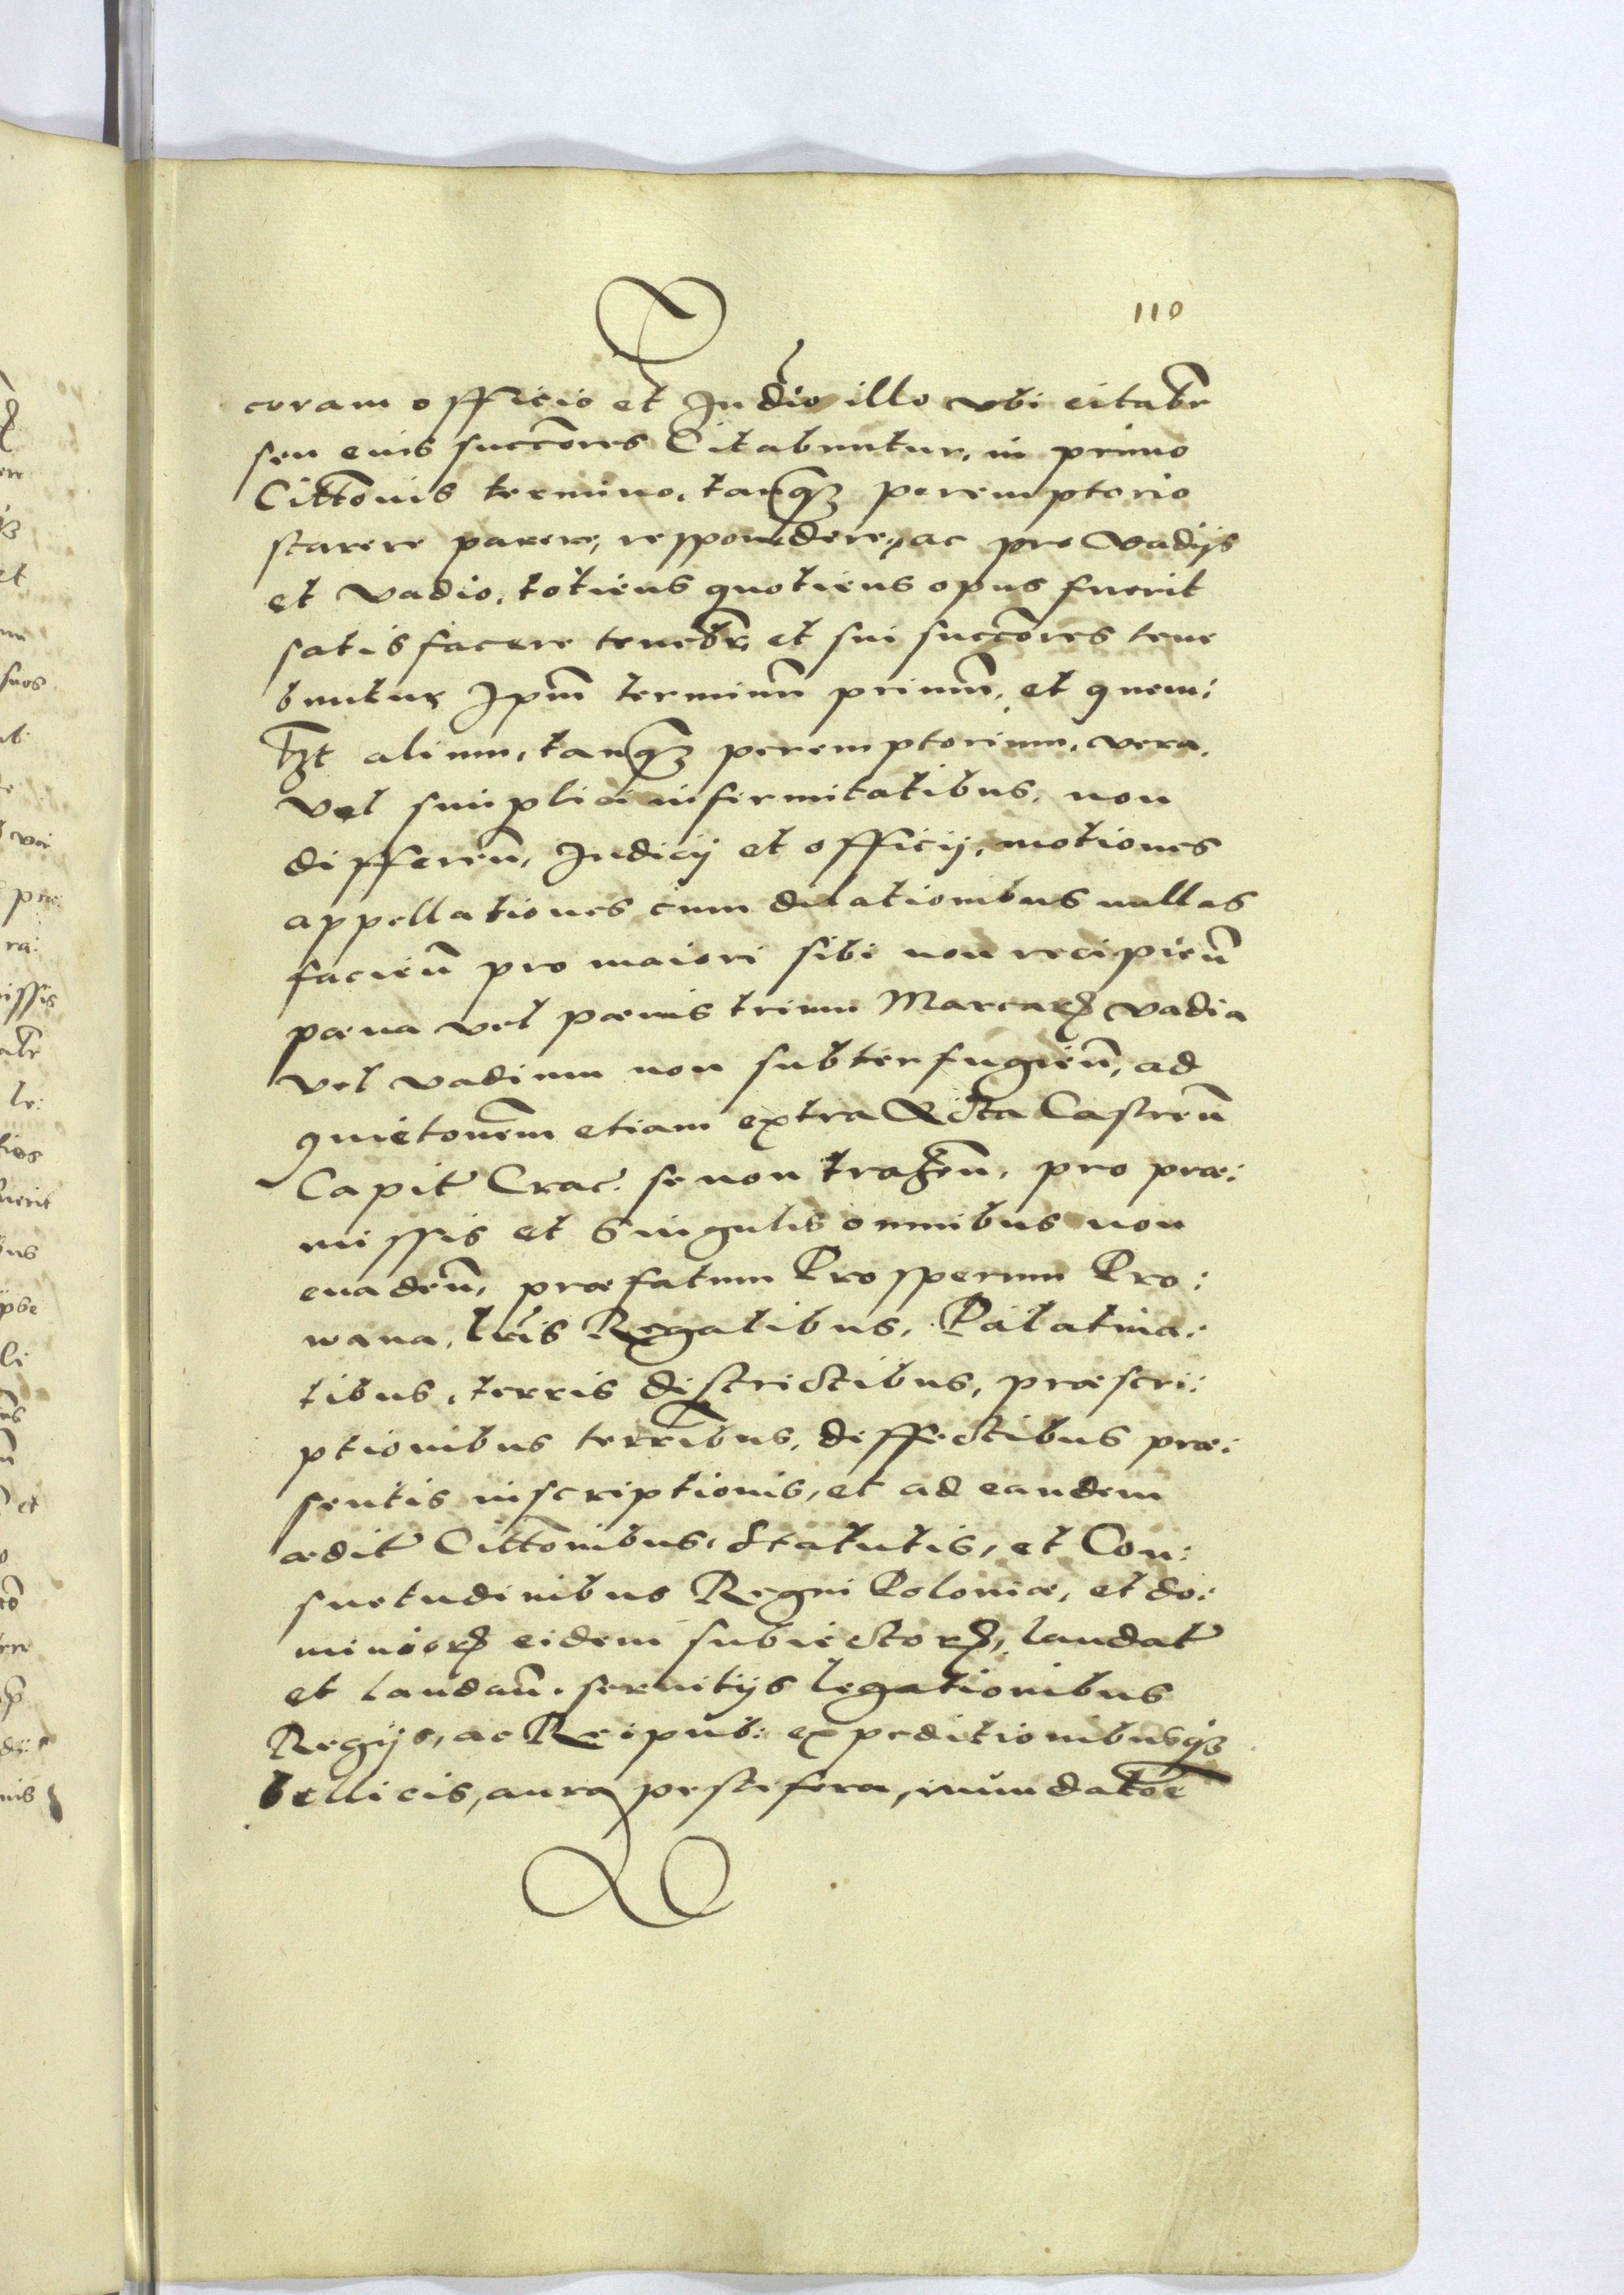 110
coram officio et Iudio illo vbi citabr̃
seu euis succ̃ores Citabuntur, in primo
Citt̃onis termino, tanq̃ꝫ peremptorio
starere parere, respondere, ac pro Vadijs
et vadio, totiens quotiens opus fuerit
satisfacere tenebr̃, et sui succ̃ores tene
buntur Ipm̃ terminũ primũ, et quem:
lꝫt alium, tanq̃ꝫ peremptorium, vera,
vel simplici infirmitatibus, non
differeñ, Iudicij et officij, motiones
appellationes cum dilationibus nullas
facieñ pro maiori sibi non recipieñ
pœna vel pœnis trium Marcarꝝ vadia
vel vadium non subterfugieñ, ad
quietonem̃ etiam extra Acta Castreñ
Capitꝰ Crac̃. se non traheñ, pro præ:
missis et Singulis omnibus non
euadeñ, præfatum Prosperum Pro:
wana, lris Regalibus, Palatina:
tibus, terris districtibus, præscri:
ptionibus terrĩbus, deffectibus præ:
sentis inscriptionis, et ad eandem
æditꝰ Citt̃onibus, Statutis, et Con:
suetudinibus Regni Poloniæ, et do:
miniorꝝ eidem subiectorꝝ, laudatꝰ
et laudañ. seruitijs legationibus
Regijs, ac Reipub: expeditionibusqꝫ
bellicis, aura pestifera, inundatõe